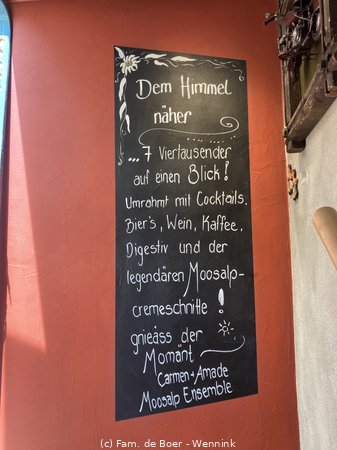 Dem Himmel
näher
... 7 Viertausender
auf einen Blick!
Umrahmt mit Cocktails,
Bier's, Wein, Kaffee,
Digestiv und der
legendären Moosalp-
cremeschnitte!
gnieäss der
Momänt
Carmen + Amade
Moosalp Ensemble
(c) Fam. de Boer - Wennink